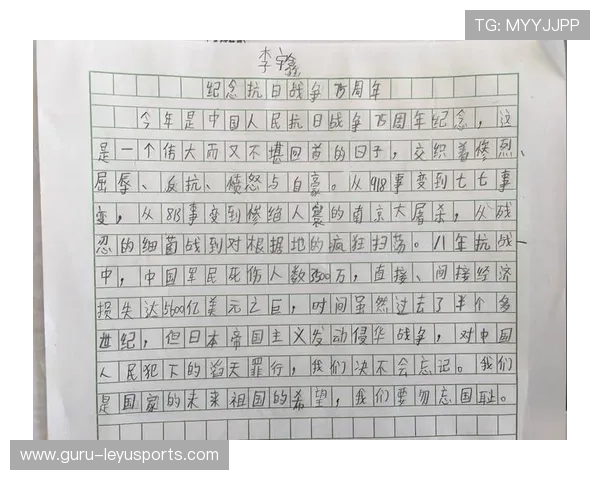 TG: MYYJJPP
李宇鑫
纪念抗日战争75周年
今年是中国人民抗日战争75周年纪念，这
是一个伟大而又不堪回首的日子，交织着惨烈、
屈辱、反抗、愤怒与自豪。从918事变到七七事
变，从813事变到惨绝人寰的南京大屠杀，从残
忍的细菌战到对根据地的疯狂扫荡。八年抗战
中，中国军民死伤人数3500万，直接、间接经济
损失达5600亿美元之巨，时间虽然过去了半个多
世纪，但日本帝国主义发动侵华战争，对中国
人民犯下的滔天罪行，我们决不会忘记。我们
是国家的未来祖国的希望，我们要勿忘国耻。
www.guru-leyusports.com